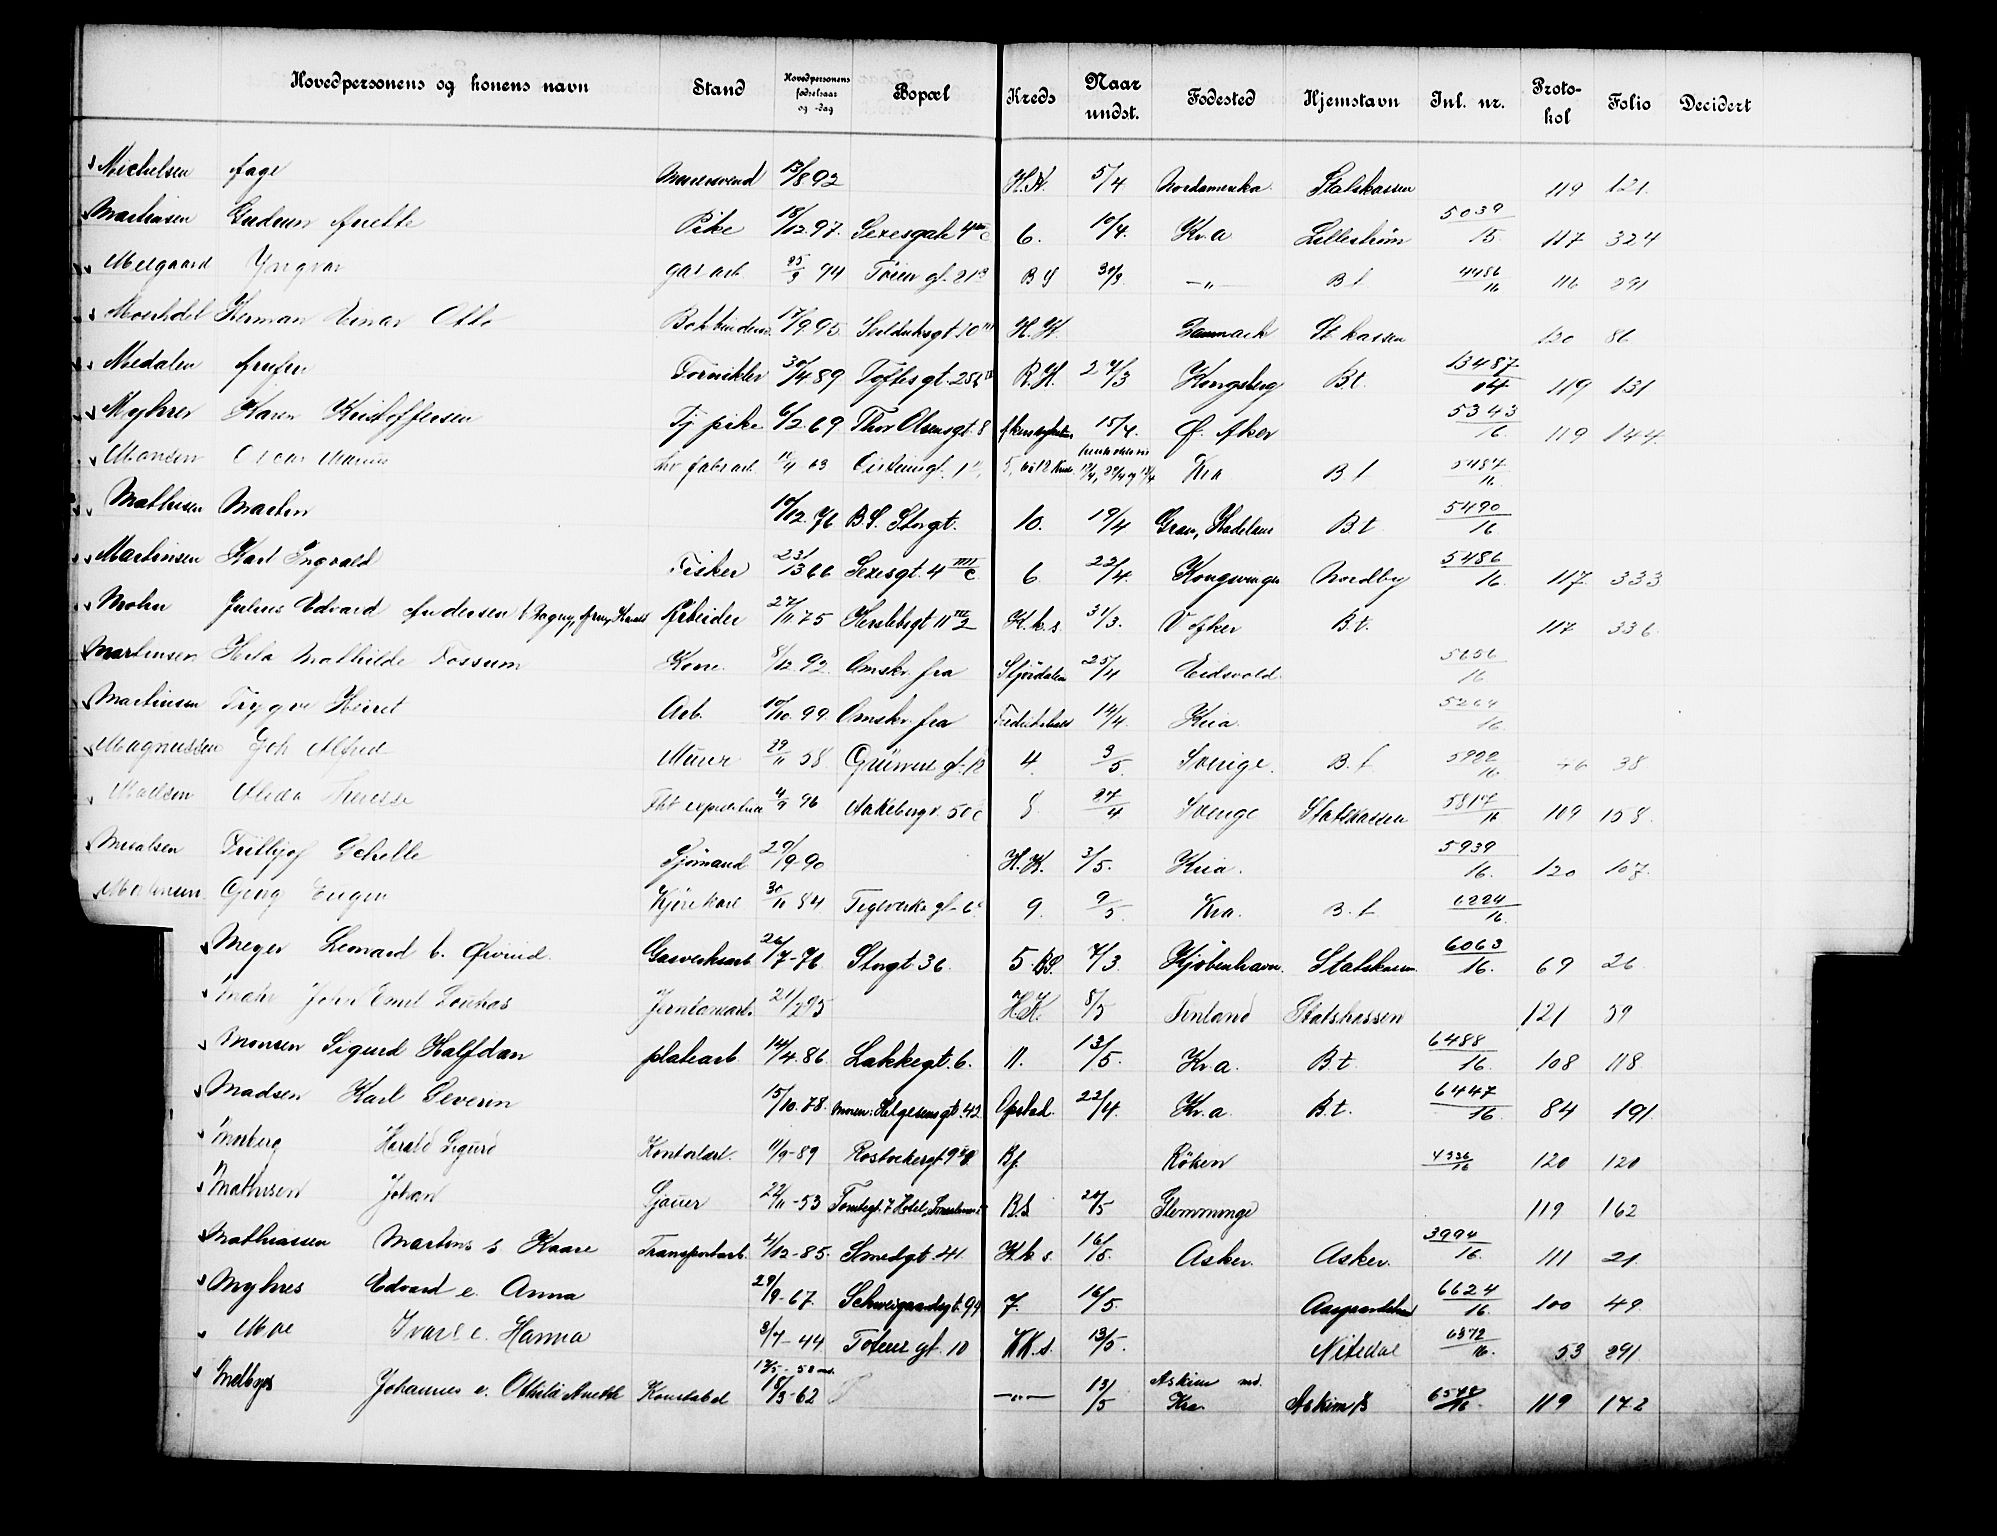 Hovedpersonens og konens navn Stand Hovedpersonens fødselsaar og -dag Bopæl Kreds Naar undst. Fødested Hjemstavn Jnl. nr. Protokol Folio Decidert
Michelsen Aage Murersvend 13/8 92 H.K. 5/4 Nordamerika Statskassen 119 121
Mathisen Gudrun Anette Pike 18/12 97. Sexesgate 4 c 6. 10/4. Kr.a Lillestrøm 5039/15. 117 324
Melgaard Yngvar gas arb. 25/9 94 Tøien gt. 21 B S 31/3. —"— B t 4486/16 116 291
Herman Einar Otto Bokbinder 17/9 95 gt. 10 H.K. Danmark St kassen 120 86
Medalen 30/4 89 Toftesgt. 25 R.H. 24/3 Kongsberg B.t. 13487/04 119 131
Myhrer Karen Kristoffersen Tj pike 6/2 69 Thor Olsensgt. 8 15/4. Ø. Aker 5343/16. 119 144.
Monsen Oscar Marius fabr arb. 11/4 63 5, Kra B t 5487/16.
Mathisen Martin 10/12 76 B.S. Storgt. 10. 19/4 Gran, Hadeland B.t 5490/16.
Martinsen Karl Ingvald Fisker 23/3 66 Sexesgt. 4 c 6. 22/4. Kongsvinger Nordby 5486/16. 117 333
Mohn Julius Edvard Andersen Arbeider 27/11 75 Herslebsgt 11 2 K.k.s. 31/3. V Aker B.t. 117 336.
Martinsen Mathilde Fossum Kone. 8/12 92. Omskr. fra Stjørdalen 25/4 Eidsvold. 5656/16
Martinsen Trygve Arb. 10/10 99. Omskr. fra 14/4. Kria. 5264/16.
Magnussen Joh Alfred Murer 29/11 58 Grüners gt. 12 4. 3/5. Sverige. B.t. 5922/16. 46 38
Madsen Alida Therese 4/9 96 Aakebergv. 50 c 8. 27/4 Sverige Statskassen 5817/16 109 158.
Fritjof Schelle Sjømand 29/9 90 H.K. 3/5. Kria. 5939/16. 120 107.
Georg Eugen Kjørekarl 30/11 84 Teglverks gt. 6 9. 9/5. Kra. B.t 6224/16.
Meyer Leonard b. Øivind. Gasverksarb. 26/7-76 Storgt. 36. 5. B.S. 7/3. Kjøbenhavn. Statskassen. 6063/16. 69 26
John Emil 21/2 95 H.K. 8/5 Finland Statskassen 121 59
Monsen Sigurd Halfdan platearb 14/4. 86. Lakkegt. 6. 11. 13/5. Kr.a. B.t 6488/16. 108 118.
Madsen Karl Severin 15/10. 78. Helgesensgt. 42 Opstad. 22/4. Kr.a. B.t. 6447/16. 84 191.
Moberg Harald Sigurd Kontorist. 11/9-89 Rostockergt 9 B.f. Røken 4336/16 120 120
Mathisen Johan Sjauer 22/11-53 Tomtegt. 7 Hotel B.S. 20/5 Glemminge 119 162
Mathiassen Martin s Kaare Transportarb. 4/12-85. Smedgt. 41. K.k s. 16/5. Asker. Asker. 3994/16. 111 21.
Myhres Edvard e. Anna 29/9-67. Schweigaardsgt. 99 7. 16/5. Aasgaardstrand 6624/16. 100 49.
Moe Ivar e. Hanna 3/7-44 Totens gt. 10 KK.s. 13/5. Nitedal 6372/16. 53 291.
Melbys Johannes e. Othilie Anette Konstabel 18/3-62 —"— 13/5 Askim Kra. Askim 6548/16. 119 172